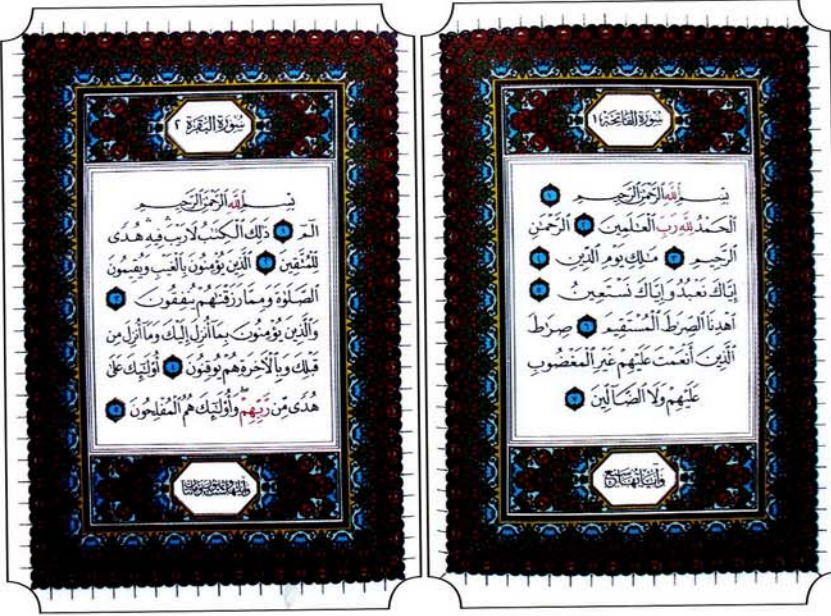 سُورَةُ الفَاتِحَة ١
بِسْمِ ٱللَّهِ ٱلرَّحْمَٰنِ ٱلرَّحِيمِ ١
ٱلْحَمْدُ لِلَّهِ رَبِّ ٱلْعَٰلَمِينَ ٢ ٱلرَّحْمَٰنِ
ٱلرَّحِيمِ ٣ مَٰلِكِ يَوْمِ ٱلدِّينِ ٤
إِيَّاكَ نَعْبُدُ وَإِيَّاكَ نَسْتَعِينُ ٥
ٱهْدِنَا ٱلصِّرَٰطَ ٱلْمُسْتَقِيمَ ٦ صِرَٰطَ
ٱلَّذِينَ أَنْعَمْتَ عَلَيْهِمْ غَيْرِ ٱلْمَغْضُوبِ
عَلَيْهِمْ وَلَا ٱلضَّآلِّينَ ٧
وَآيَاتُهَا سَبْعٌ
سُورَةُ البَقَرَة ٢
بِسْمِ ٱللَّهِ ٱلرَّحْمَٰنِ ٱلرَّحِيمِ
الٓمٓ ١ ذَٰلِكَ ٱلْكِتَٰبُ لَا رَيْبَ ۛ فِيهِ ۛ هُدًى
لِّلْمُتَّقِينَ ٢ ٱلَّذِينَ يُؤْمِنُونَ بِٱلْغَيْبِ وَيُقِيمُونَ
ٱلصَّلَوٰةَ وَمِمَّا رَزَقْنَٰهُمْ يُنفِقُونَ ٣
وَٱلَّذِينَ يُؤْمِنُونَ بِمَآ أُنزِلَ إِلَيْكَ وَمَآ أُنزِلَ مِن
قَبْلِكَ وَبِٱلْءَاخِرَةِ هُمْ يُوقِنُونَ ٤ أُو۟لَٰٓئِكَ عَلَىٰ
هُدًى مِّن رَّبِّهِمْ ۖ وَأُو۟لَٰٓئِكَ هُمُ ٱلْمُفْلِحُونَ ٥